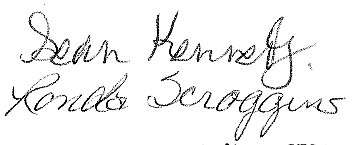 Sean Kennedy.
Ronda Scroggins